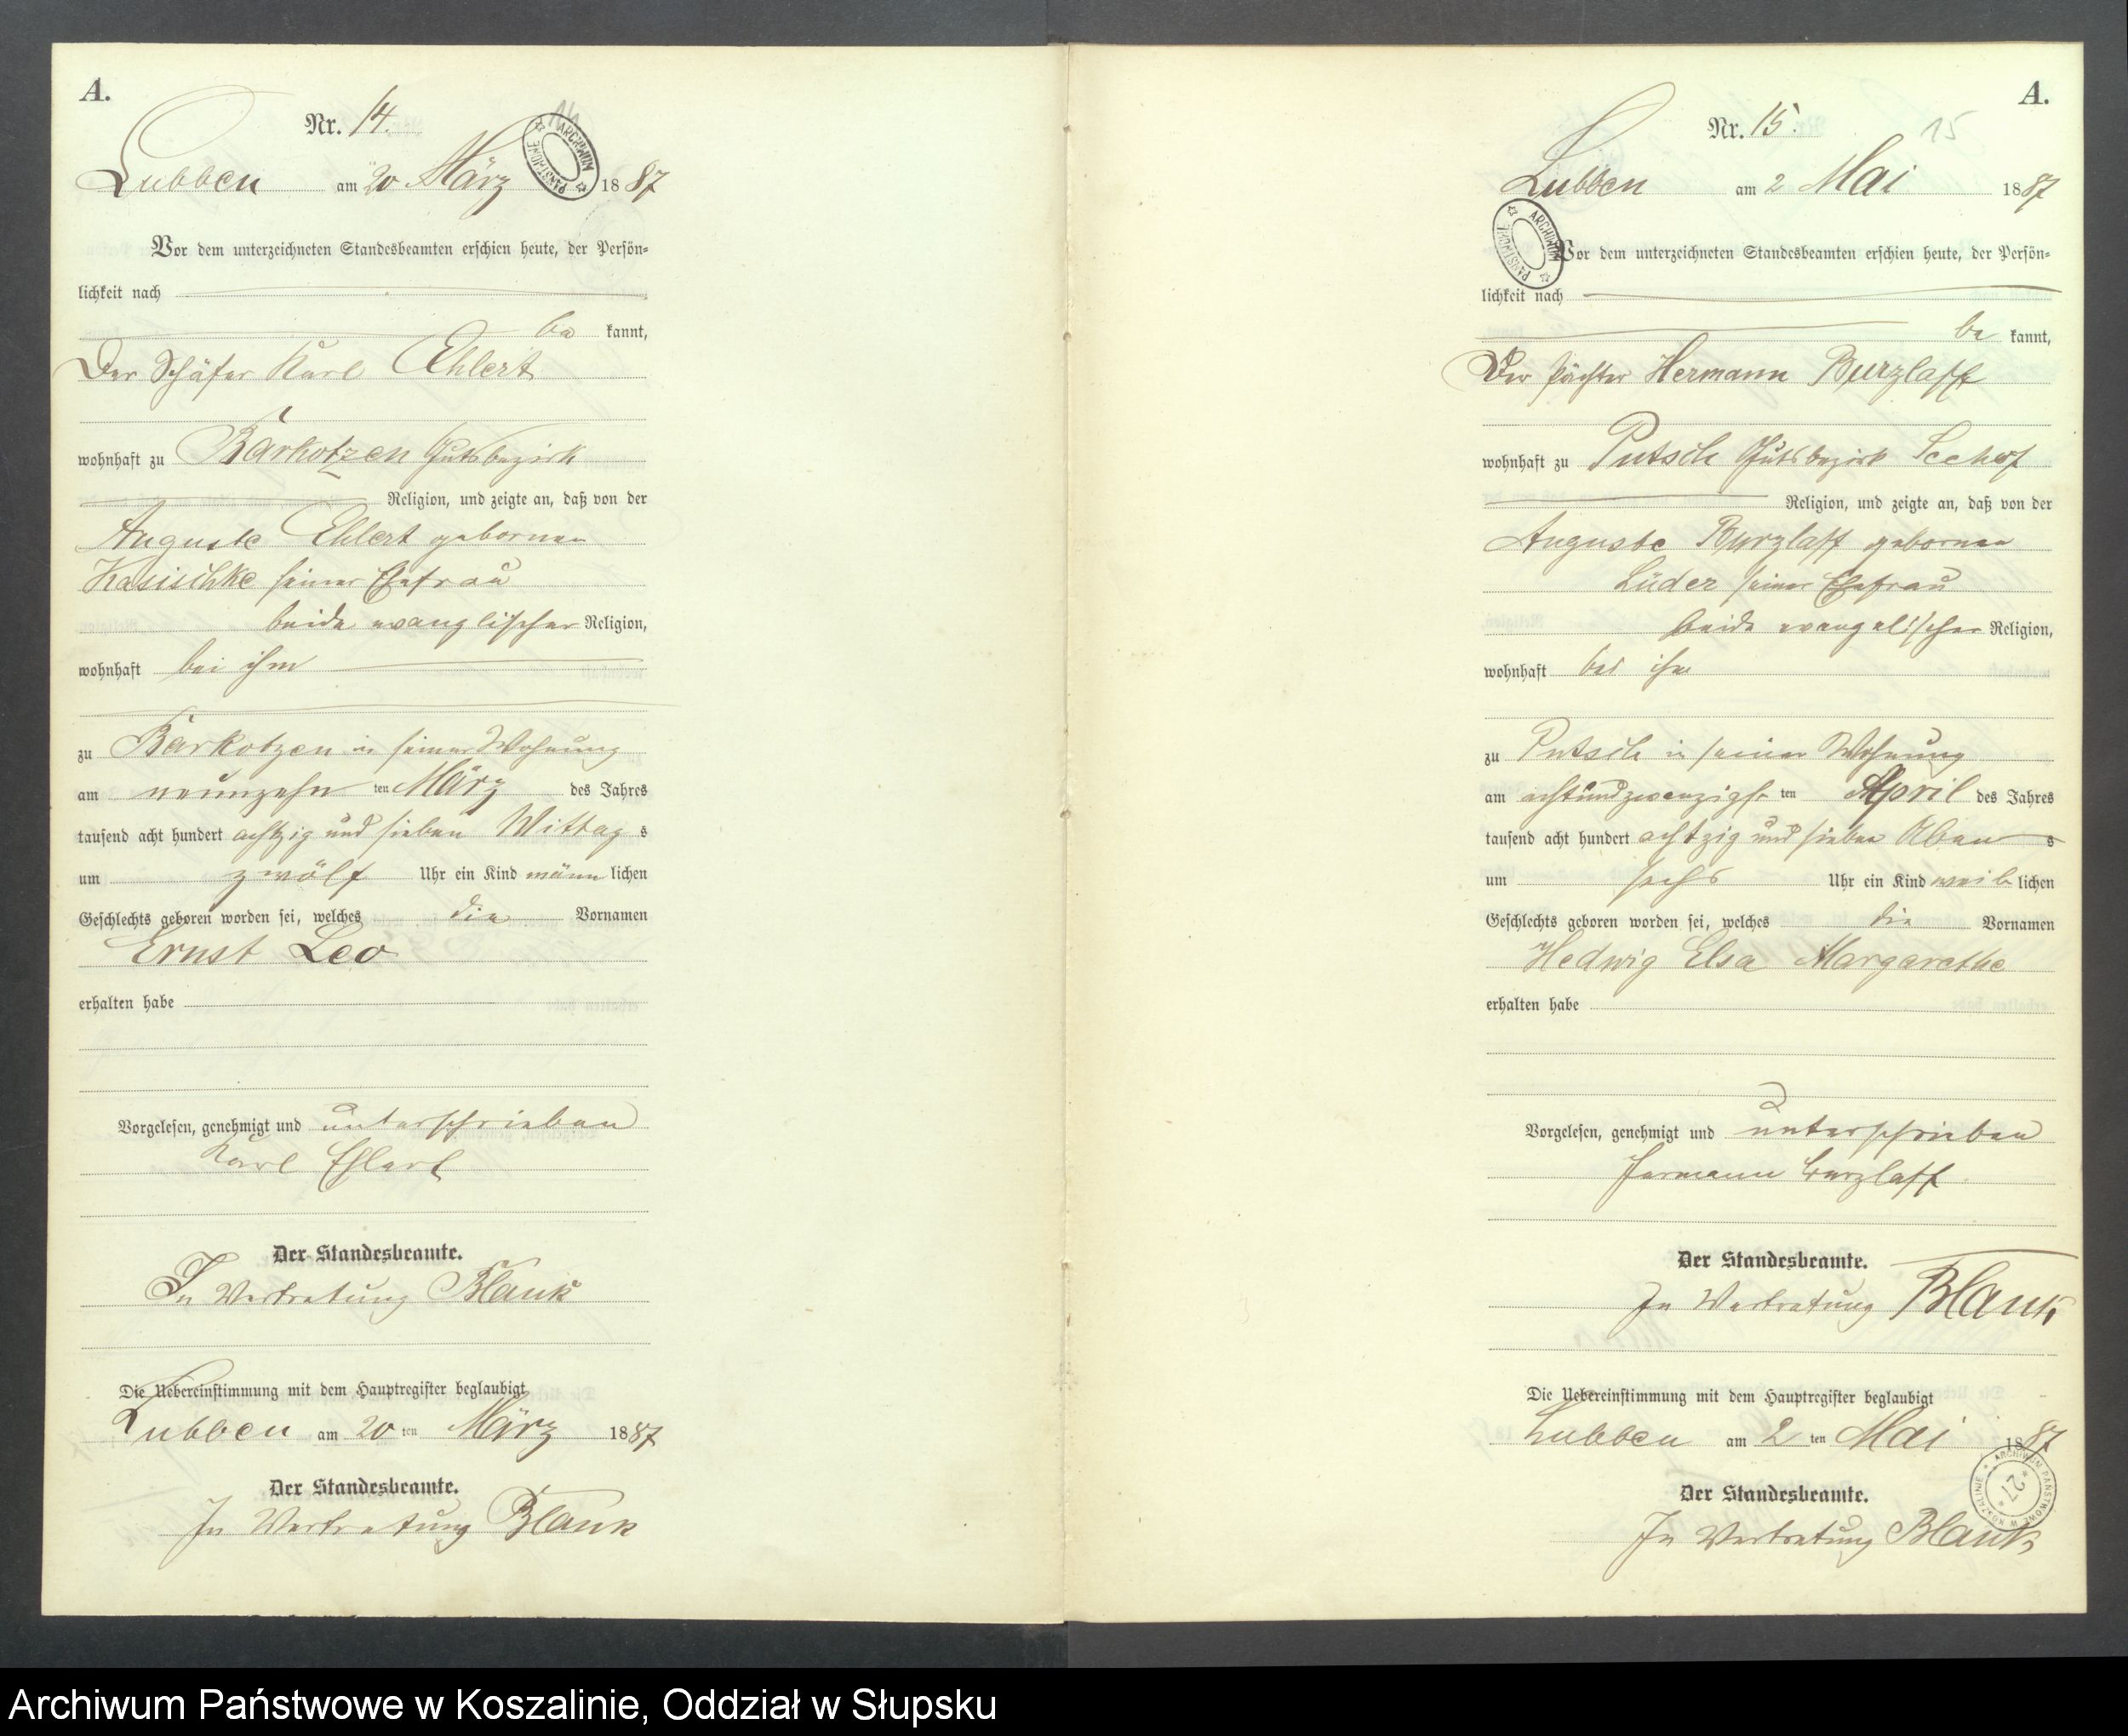 A.
Nr. 14.
14
ARCHIWUM PAŃSTWOWE
Lubben am 20 März 1887
Vor dem unterzeichneten Standesbeamten erschien heute, der Persön-
lichkeit nach
be kannt,
Der Schäfer Karl Ehlert
wohnhaft zu Barkotzen Gutsbezirk
Religion, und zeigte an, daß von der
Auguste Ehlert gebornen
Kasischke seiner Ehefrau
beide evanglischer Religion,
wohnhaft bei ihm
zu Barkotzen in seiner Wohnung
am neunzehn ten März des Jahres
tausend acht hundert achtzig und sieben Mittag s
um zwölf Uhr ein Kind männ lichen
Geschlechts geboren worden sei, welches die Vornamen
Ernst Leo
erhalten habe
Vorgelesen, genehmigt und unterschrieben
Karl Ehlert
Der Standesbeamte.
In Vertretung Blank
Die Uebereinstimmung mit dem Hauptregister beglaubigt
Lubben am 20 ten März 1887
Der Standesbeamte.
In Vertretung Blank
A.
Nr. 15.
15
Lubben am 2 Mai 1887
ARCHIWUM PAŃSTWOWE
Vor dem unterzeichneten Standesbeamten erschien heute, der Persön-
lichkeit nach
be kannt,
Der Pächter Hermann Burzlaff
wohnhaft zu Putsch Gutsbezirk Seehof
Religion, und zeigte an, daß von der
Auguste Burzlaff gebornen
Lüder seiner Ehefrau
beide evangelischer Religion,
wohnhaft bei ihm
zu Putsch in seiner Wohnung
am achtundzwanzigs ten April des Jahres
tausend acht hundert achtzig und sieben Aben s
um sechs Uhr ein Kind weib lichen
Geschlechts geboren worden sei, welches die Vornamen
Hedwig Elsa Margarethe
erhalten habe
Vorgelesen, genehmigt und unterschrieben
Hermann Burzlaff
Der Standesbeamte.
In Vertretung Blank
Die Uebereinstimmung mit dem Hauptregister beglaubigt
Lubben am 2 ten Mai 1887
ARCHIWUM PAŃSTWOWE W KOSZALINIE
27
Der Standesbeamte.
In Vertretung Blank
Archiwum Państwowe w Koszalinie, Oddział w Słupsku